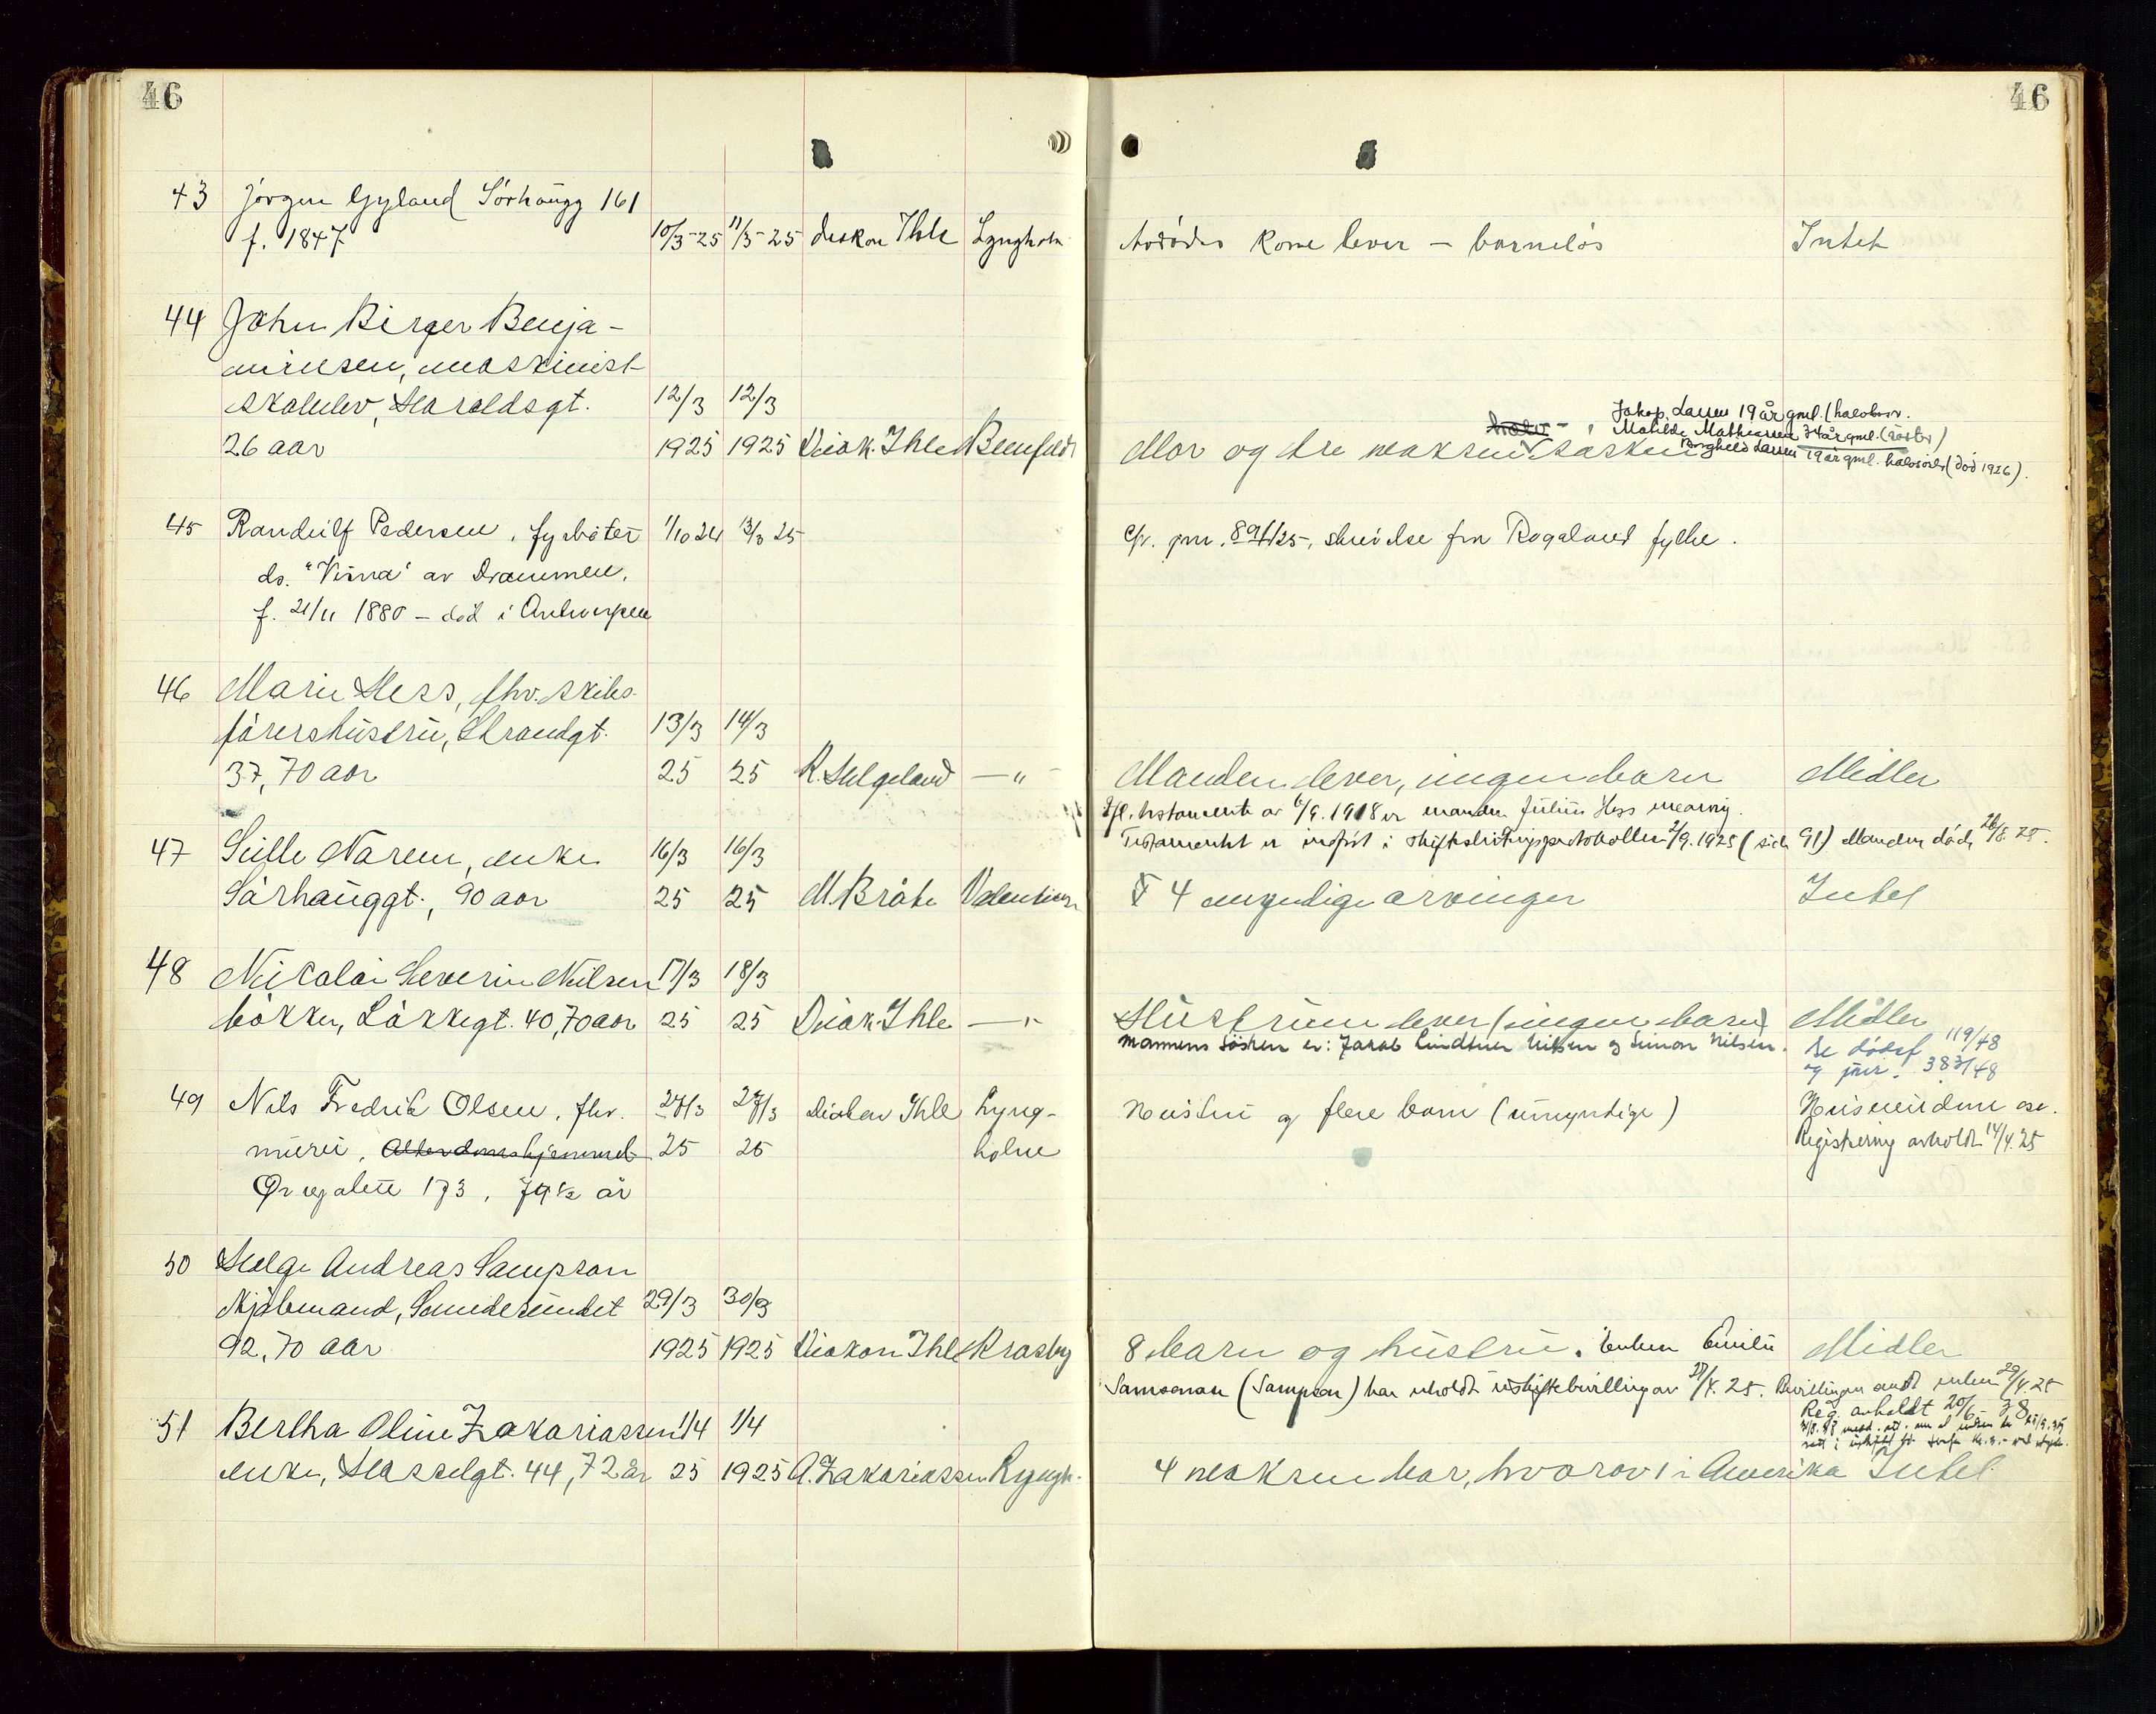 46
46
43 Jörgen Gyland Sörhaugg 161
f. 1847 10/3-25 11/3-25 diakon Ihle Lyngholm
Avdödes kone lever – barnelös Intet
44 John Birger Benja-
minsen, maskinist-
skoleelev, Haraldsgt. 12/3 12/3
26 aar 1925 1925 Diak. Ihle
Jakop Larsen 19 år gml. (halvbror.
Matilde Mathiesen 34 år gml. (söster)
Mor og tre voksne søsken
Borghild Larsen 19 år gml. halvsöster (död 1926).
45 Randulf Pedersen, fyrböter 1/10 24 13/3 25
ds. "Vinna" av Drammen,
f. 21/11 1880 – död i Antwerpen
jnr. 891/25, skrivelse fra Rogaland fylke.
46 Marie Hess, fhv. skibs-
førershustru, Strandgt. 13/3 14/3
37, 70 aar 25 25 R. Helgeland – " –
Manden lever, ingen barn Midler
Ifl. testamente av 6/9. 1918 er manden Julius Hess enearving.
Testamentet er indført i skifteslutningsprotokollen 2/9. 1925 (side 91) Manden död 26/8. 25.
47 Sille Naren, enke 16/3 16/3
Sørhauggt., 90 aar 25 25 M. Bråte Valentinsen
4 myndige arvinger Intet
48 Nikolai Severin Nilsen 17/3 18/3
bøkker, Løkkegt. 40, 70 aar 25 25 Diak. Ihle – " –
Hustruen lever (ingen barn) Midler
Mannens söskn er: Jakob Lindtner Nilsen og Simon Nilsen.
Se dödsf 119/48
og jnr. 383/48
49 Nils Fredrik Olsen, fhv. 27/3 27/3 diakon Ihle Lyng-
murer, Alderdomshjemmet 25 25 holm
Øvregaten 173, 79 1/2 år
Hustru og flere barn (umyndige)
Huseiendom osv.
Registrering avholdt 14/4. 25
50 Helge Andreas Sampson
Kjøbmand, Smedesundet 29/3 30/3
92, 70 aar 1925 1925 Diakon Ihle Krosby
8 barn og hustru. Enken Emilie Midler
Samsonsen (Sampson) har erholdt uskiftebevilling av 27/4. 25. Bevillingen sendt enken 29/4. 25
Reg. avholdt 20/6 – 38
51 Bertha Oline Zakariassen 1/4 1/4
enke, Hasselgt. 44, 72 år 25 1925 A. Zakariassen Lyngh.
4 voksne barn, hvorav 1 i Amerika Intet